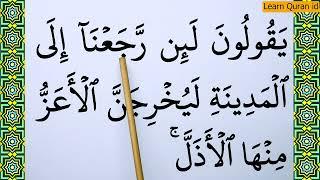 Learn Quran id
يَقُولُونَ لَئِن رَّجَعْنَآ إِلَى
ٱلْمَدِينَةِ لَيُخْرِجَنَّ ٱلْأَعَزُّ
مِنْهَا ٱلْأَذَلَّ ۚ